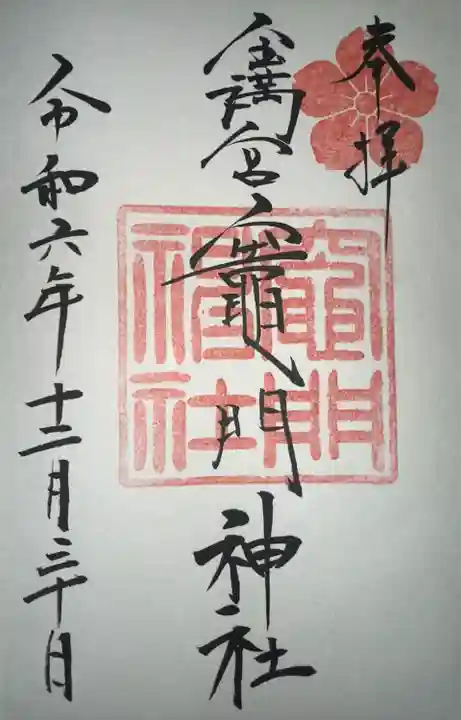 奉拝
宝満宮竈門神社
竈門
神社
令和六年十二月三十日